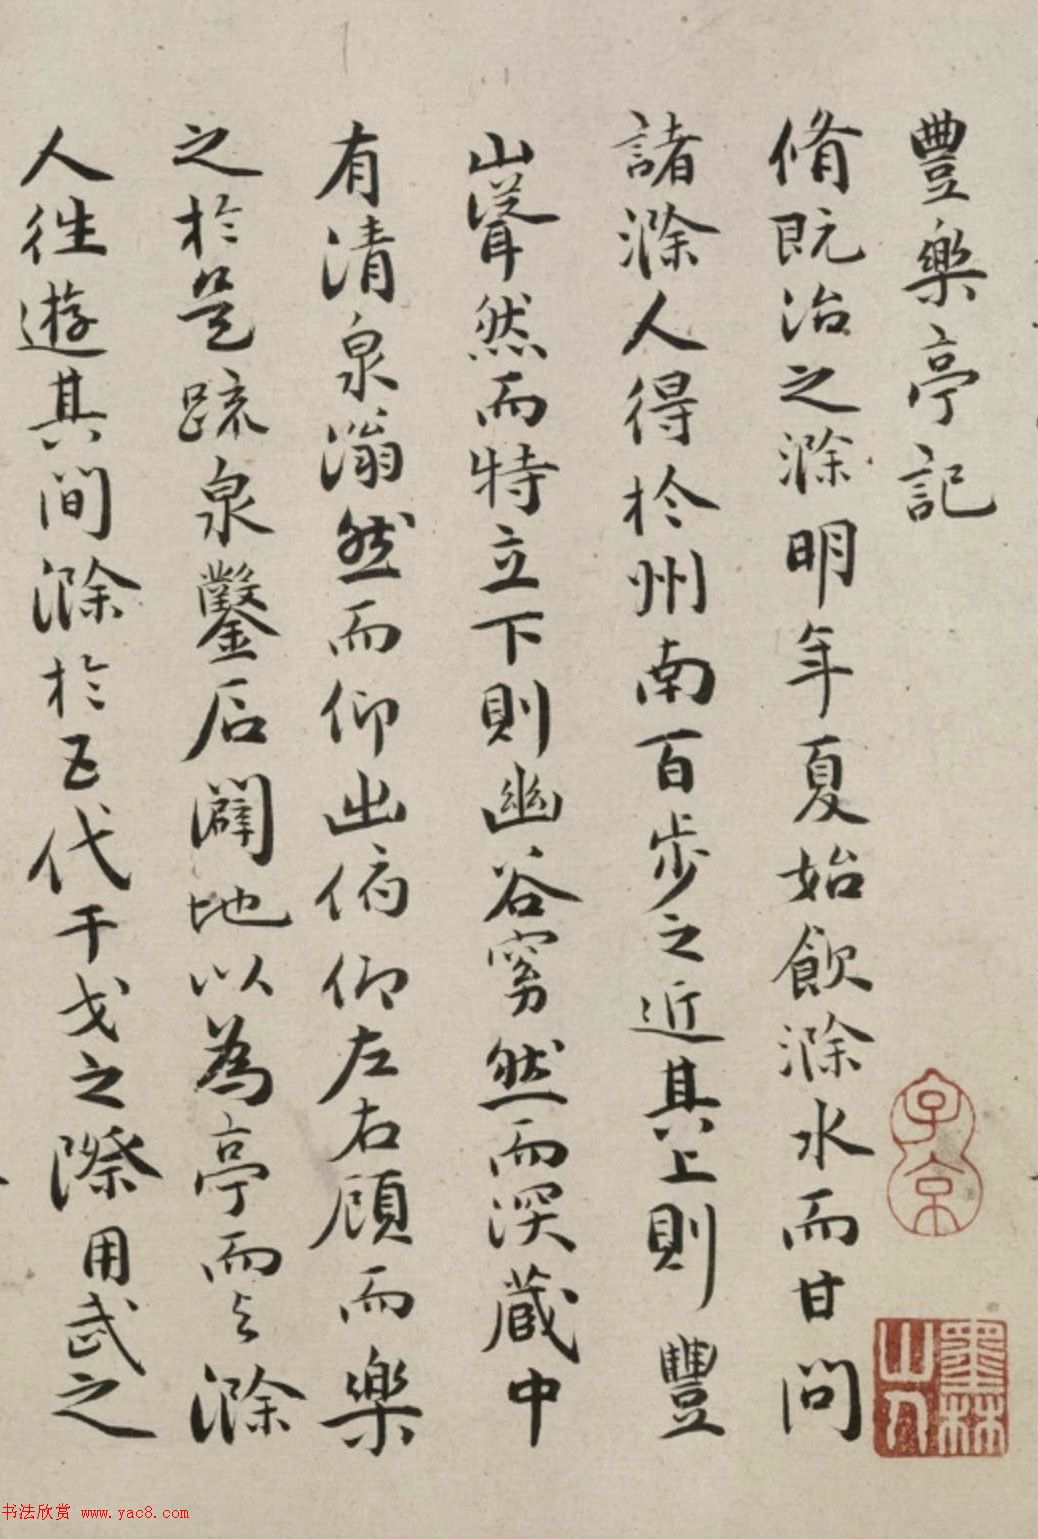 豐樂亭記
脩既治之滁明年夏始飲滁水而甘問
諸滁人得於州南百步之近其上則豐
山聳然而特立下則幽谷窈然而深蔵中
有清泉滃然而仰出俯仰左右顧而樂
之於是疏泉鑿石闢地以為亭而與滁
人往遊其間滁於五代干戈之際用武之
子京
墨林山人
书法欣赏 www.yac8.com